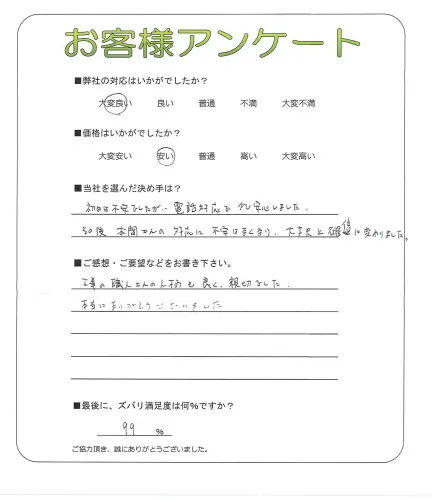 お客様アンケート
■弊社の対応はいかがでしたか?
大変良い 良い 普通 不満 大変不満
■価格はいかがでしたか?
大変安い 安い 普通 高い 大変高い
■当社を選んだ決め手は?
初めは不安でしたが、電話対応で少し安心しました。
その後 本間さんの対応に不安はなくなり、大丈夫と確信に変わりました。
■ご感想・ご要望などをお書き下さい。
工事の職人さんの人柄も良く、親切でした。
本当にありがとうございました
■最後に、ズバリ満足度は何%ですか?
99 %
ご協力頂き、誠にありがとうございました。